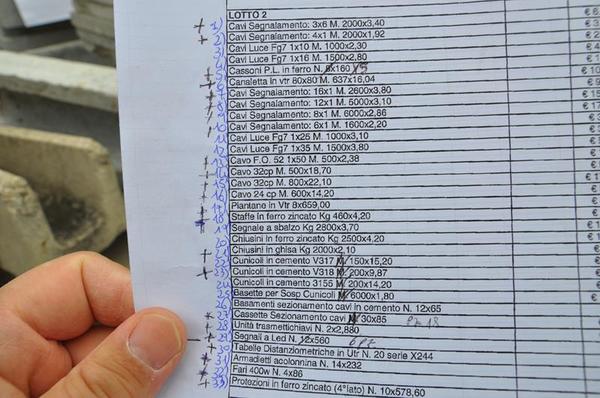 LOTTO 2
1) Cavi Segnalamento: 3x6 M. 2000x3,40
2) Cavi Segnalamento: 4x1 M. 2000x1,92
3) Cavi Luce Fg7 1x10 M. 1000x2,30
4) Cavi Luce Fg7 1x16 M. 1500x2,80
5) Cassoni P.L. in ferro N. 8x160
6) Canaletta in vtr 80x80 M. 637x16,04
7) Cavi Segnalamento: 16x1 M. 2600x3,80
8) Cavi Segnalamento: 12x1 M. 5000x3,10
9) Cavi Segnalamento: 8x1 M. 6000x2,86
10) Cavi Segnalamento: 6x1 M. 1600x2,20
11 Cavi Luce Fg7 1x25 M. 1000x3,10
12 Cavi Luce Fg7 1x35 M. 1500x3,80
13 Cavo F.O. 52 1x50 M. 500x2,38
14 Cavo 32cp M. 500x18,70
15 Cavo 32cp M. 800x22,10
16 Cavo 24 cp M. 600x14,20
17 Piantane in Vtr 8x659,00
18 Staffe in ferro zincato Kg 460x4,20
19 Segnale a sbalzo Kg 2800x3,70
20 Chiusini in ferro zincato Kg 2500x4,20
21 Chiusini in ghisa Kg 2000x2,10
22 Cunicoli in cemento V317 M. 150x15,20
23 Cunicoli in cemento V318 M. 200x9,87
24 Cunicoli in cemento 3155 M. 200x14,20
25 Basette per Sosp Cunicoli M. 6000x1,80
26 Basamenti sezionamento cavi in cemento N. 12x65
27 Cassette Sezionamento cavi N 30x85
28 Unità trasmettichiavi N. 2x2,880
29 Segnali a Led N. 12x560
30 Tabelle Distanziometriche in Utr N. 20 serie X244
31 Armadietti acolonnina N. 14x232
32 Fari 400w N. 4x86
33) Protezioni in ferro zincato (4°lato) N. 10x578,60